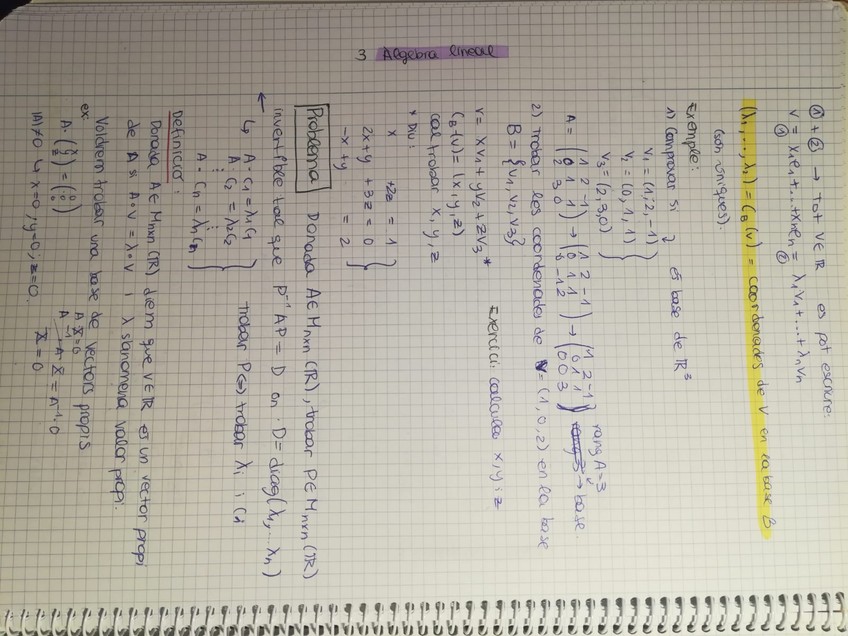 3 Algebra lineal
①+② → Tot v∈ℝ es pot escriure:
v = x₁e₁+...+xₙeₙ = λ₁v₁+...+λₙvₙ
① ②
(λ₁,...,λₙ) = C_B(v) = coordenades de v en la base B
(són úniques).
Exemple:
1) Comprovar si és base de ℝ³
v₁ = (1,2,-1)
v₂ = (0,1,1)
v₃ = (2,3,0)
A = (1 2 -1 / 0 1 1 / 2 3 0) → (1 2 -1 / 0 1 1 / 0 -1 2) → (1 2 -1 / 0 1 1 / 0 0 3) rang A = 3 → base.
2) Trobar les coordenades de v = (1,0,2) en la base
B = {v₁, v₂, v₃}
v = xv₁ + yv₂ + zv₃ *
C_B(v) = (x,y,z)
cal trobar x,y,z
Exercici: calculau x,y i z
* Diu:
x +2z = 1
2x+y + 3z = 0
-x+y = 2
Problema Donada A∈Mₙₓₙ(ℝ), trobar P∈Mₙₓₙ(ℝ)
invertible tal que P⁻¹AP = D on: D = diag(λ₁,...λₙ)
↳ A·c₁ = λ₁c₁
A·c₂ = λ₂c₂
⋮
A·cₙ = λₙcₙ
trobar P⇔ trobar λᵢ i cᵢ
Definició:
Donada A∈Mₙₓₙ(ℝ) diem que v∈ℝ és un vector propi
de A si A·v = λ·v i λ s'anomena valor propi.
Voldrem trobar una base de vectors propis
ex:
A·(x y z) = (0 0 0)
|A|≠0 ↳ x=0; y=0; z=0.
AX=0
A⁻¹AX = A⁻¹·0
X = 0